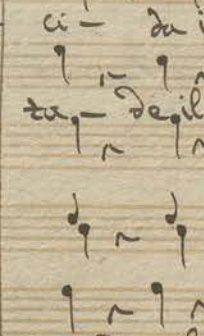 ci - da i
za - de il